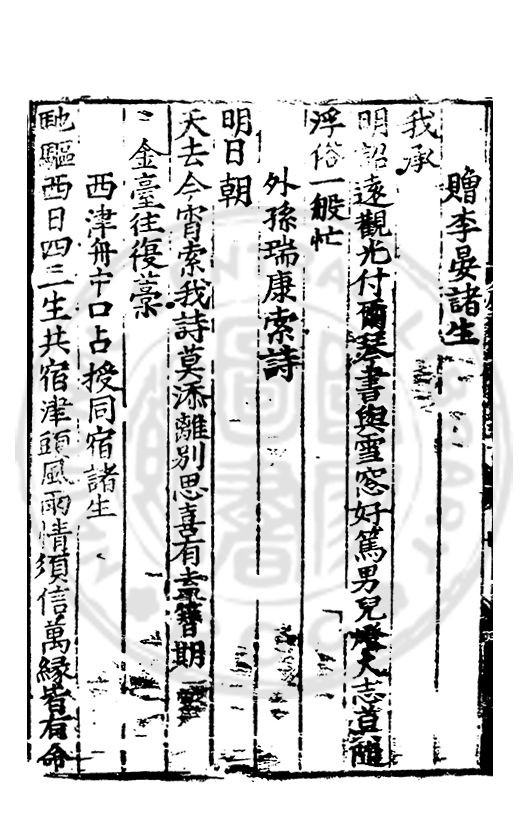 贈李晏諸生
我承
明詔遠觀光付爾琴書與雪窓好篤男兒大志莫隨
浮俗一般忙
外孫瑞康索詩
明日朝
天去今宵索我詩莫添離別思喜有盍簪期
金臺往復藁
西津舟中口占授同宿諸生
馳驅西日四三生共宿津頭風雨情須信萬緣皆有命